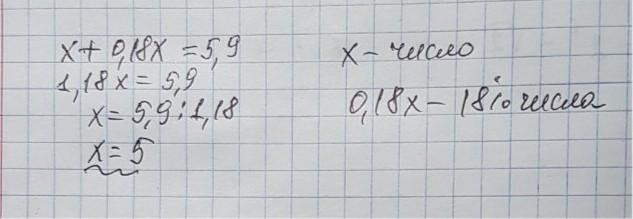 x + 0,18x = 5,9
1,18x = 5,9
x = 5,9 : 1,18
x = 5
x – число
0,18x – 18% числа